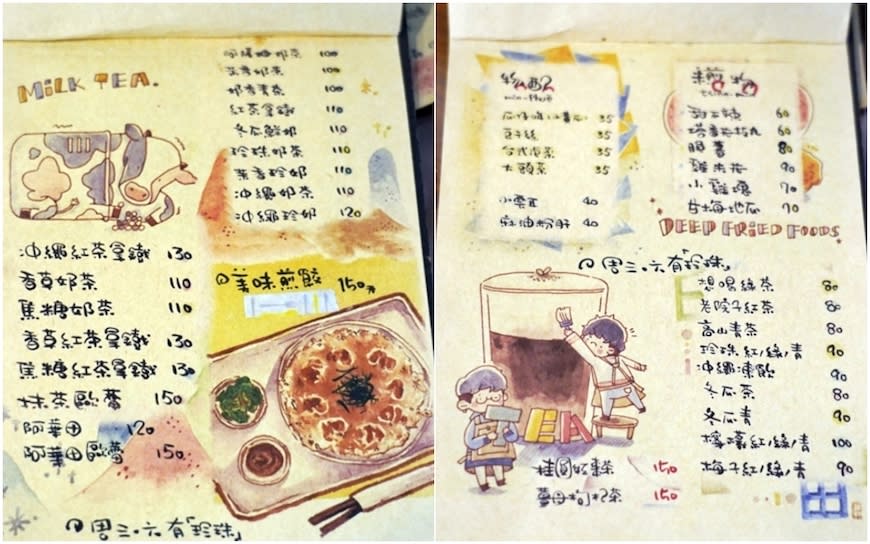 MILK TEA.
奶茶 100
奶茶 100
奶青茶 100
紅茶拿鐵 110
冬瓜鮮奶 110
珍珠奶茶 110
茉香珍奶 110
沖繩奶茶 110
沖繩珍奶 120
沖繩紅茶拿鐵 130
香草奶茶 110
焦糖奶茶 110
香草紅茶拿鐵 130
焦糖紅茶拿鐵 130
抹茶歐蕾 150
阿華田 120
阿華田歐蕾 150
美味煎餃 150元
周三.六有「珍珠」
35
豆干絲 35
台式泡菜 35
大頭菜 35
小雲耳 40
麻油粉肝 40
甜不辣 60
60
80
雞米花 90
小雞塊 70
甘梅地瓜 70
DEEP FRIED FOODS.
周三.六有「珍珠」
想喝綠茶 80
老院子紅茶 80
高山青茶 80
珍珠紅/綠/青 90
沖繩凍飲 90
冬瓜茶 80
冬瓜青 90
檸檬紅/綠/青 100
梅子紅/綠/青 90
TEA
桂圓紅棗茶 150
薑母枸杞茶 150